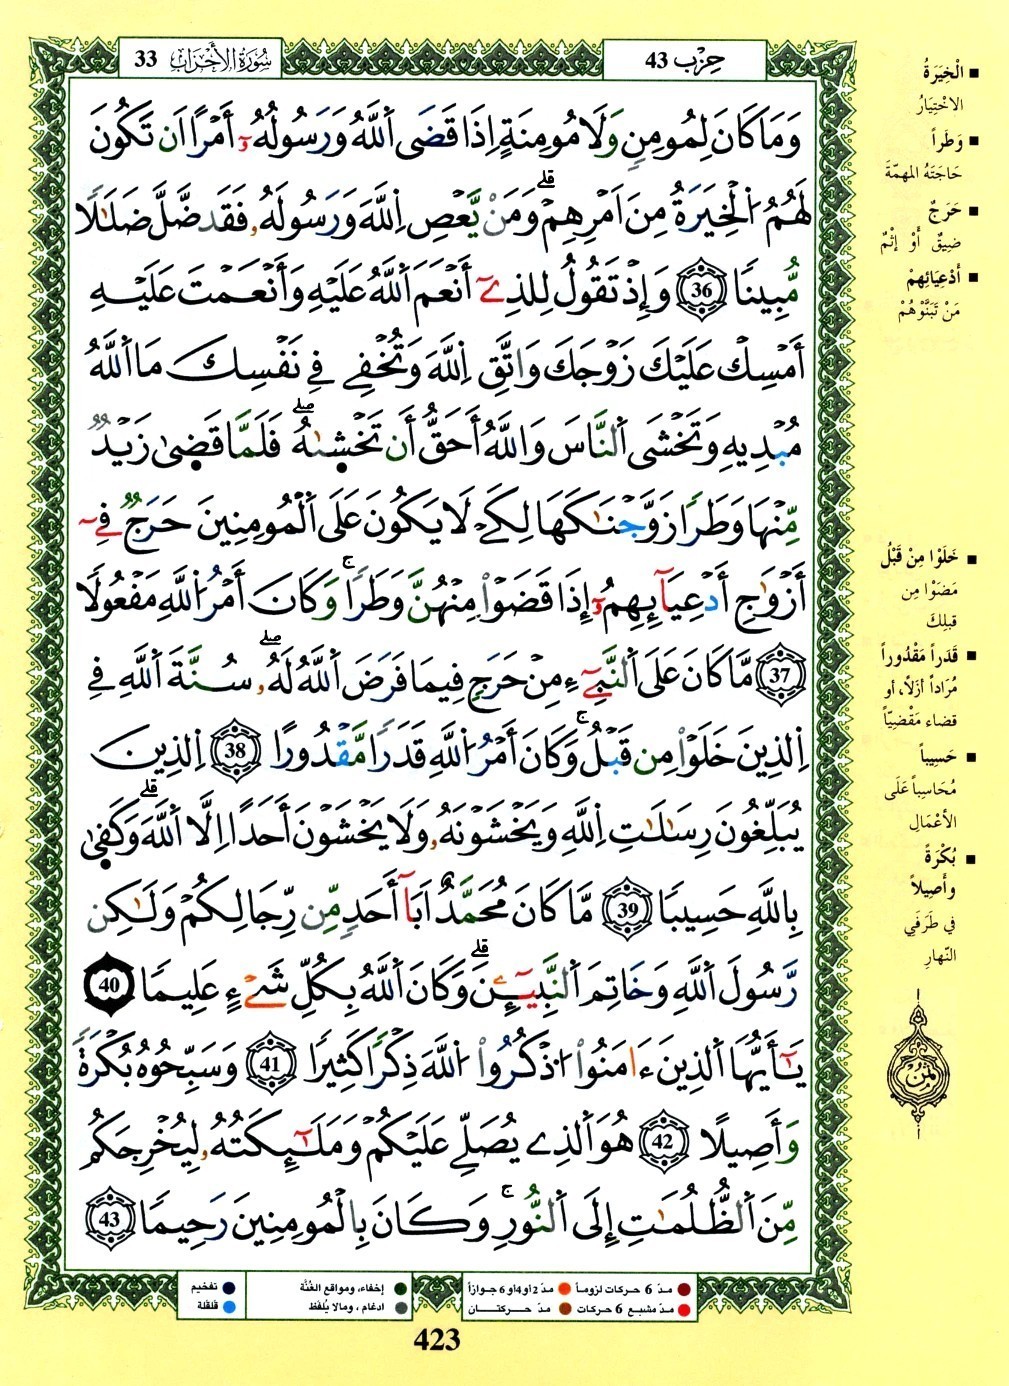 حِزْب 43
سُورَةُ الأَحْزَاب 33
وَمَا كَانَ لِمُومِنٍ وَلَا مُومِنَةٍ اِذَا قَضَى اَللَّهُ وَرَسُولُهُۥٓ أَمْرًا اَن تَكُونَ
لَهُمُ اُلْخِيَرَةُ مِنَ اَمْرِهِمْۖ وَمَنْ يَّعْصِ اِللَّهَ وَرَسُولَهُۥ فَقَد ضَّلَّ ضَلَٰلًا
مُّبِينًا 36 وَإِذْ تَقُولُ لِلذِےٓ أَنْعَمَ اَللَّهُ عَلَيْهِ وَأَنْعَمْتَ عَلَيْهِ
أَمْسِكْ عَلَيْكَ زَوْجَكَ وَاتَّقِ اِللَّهَ وَتُخْفِے فِے نَفْسِكَ مَا اَللَّهُ
مُبْدِيهِ وَتَخْشَى اَلنَّاسَ وَاللَّهُ أَحَقُّ أَن تَخْش۪ىٰهُۖ فَلَمَّا قَض۪ىٰ زَيْدٌ
مِّنْهَا وَطَرًا زَوَّجْنَٰكَهَا لِكَےْ لَا يَكُونَ عَلَى اَلْمُومِنِينَ حَرَجٌ فِےٓ
أَزْوَٰجِ أَدْعِيَآئِهِمُۥٓ إِذَا قَضَوْاْ مِنْهُنَّ وَطَرًاۚ وَكَانَ أَمْرُ اُللَّهِ مَفْعُولًا
37 مَّا كَانَ عَلَى اَلنَّبِےٓءِ مِنْ حَرَجٍ فِيمَا فَرَضَ اَللَّهُ لَهُۥۖ سُنَّةَ اَللَّهِ فِے
اِلذِينَ خَلَوْاْ مِن قَبْلُۚ وَكَانَ أَمْرُ اُللَّهِ قَدَرًا مَّقْدُورًا 38 اِلذِينَ
يُبَلِّغُونَ رِسَٰلَٰتِ اِللَّهِ وَيَخْشَوْنَهُۥ وَلَا يَخْشَوْنَ أَحَدًا اِلَّا اَللَّهَۖ وَكَف۪ىٰ
بِاللَّهِ حَسِيبًا 39 مَّا كَانَ مُحَمَّدٌ اَبَآ أَحَدٍ مِّن رِّجَالِكُمْ وَلَٰكِن
رَّسُولَ اَللَّهِ وَخَاتِمَ اَلنَّبِيٓـِٕينَۖ وَكَانَ اَللَّهُ بِكُلِّ شَےْءٍ عَلِيمًا 40
يَٰٓأَيُّهَا اَلذِينَ ءَامَنُواْ اُذْكُرُواْ اُللَّهَ ذِكْرًا كَثِيرًا 41 وَسَبِّحُوهُ بُكْرَةً
وَأَصِيلًا 42 هُوَ اَلذِے يُصَلِّے عَلَيْكُمْ وَمَلَٰٓئِكَتُهُۥ لِيُخْرِجَكُم
مِّنَ اَلظُّلُمَٰتِ إِلَى اَلنُّورِۚ وَكَانَ بِالْمُومِنِينَ رَحِيمًا 43
■ الْخِيَرَةُ
الاخْتِيَارُ
■ وَطَراً
حَاجَتَهُ المهمّةَ
■ حَرَجٌ
ضِيقٌ أَوْ إِثْمٌ
■ أَدْعِيَائِهِمْ
مَنْ تَبَنَّوْهُمْ
■ خَلَوْا مِنْ قَبْلُ
مَضَوْا مِن
قبلِكَ
■ قَدَراً مَقْدُوراً
مُرَاداً أزَلاً، أو
قضاء مَقْضِيّاً
■ حَسِيباً
مُحَاسِباً عَلَى
الأعْمَالِ
■ بُكْرَةً
وأَصِيلاً
في طَرَفَي
النّهارِ
ثُمُن
مدّ 6 حركات لزوماً
مدّ 2 أو 4 أو 6 جوازاً
إخفاء، ومواقع الغُنَّة
تفخيم
مدّ مشبع 6 حركات
مدّ حركتان
ادغام، ومالا يُلفَظ
قلقلة
423